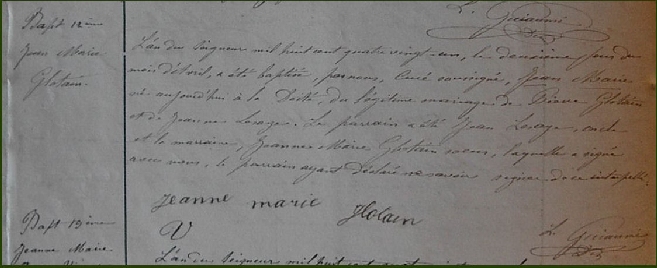 Bapt 12ème
Jean Marie
Glotain
L'an du Seigneur mil huit cent quatre vingt-un, le deuxième jour du
mois d'Avril, a été baptisé, par nous, Curé soussigné, Jean Marie
né aujourd'hui à la Doité, du légitime mariage de Pierre Glotain
et de Jeanne Lesage. Le parrain a été Jean Lesage, oncle
et la marraine, Jeanne Marie Glotain soeur, laquelle a signé
avec nous, le parrain ayant déclaré ne savoir signer de ce interpellé
Jeanne marie Glotain
Bapt 13ème
Jeanne Marie
L'an du Seigneur mil huit cent quatre vingt